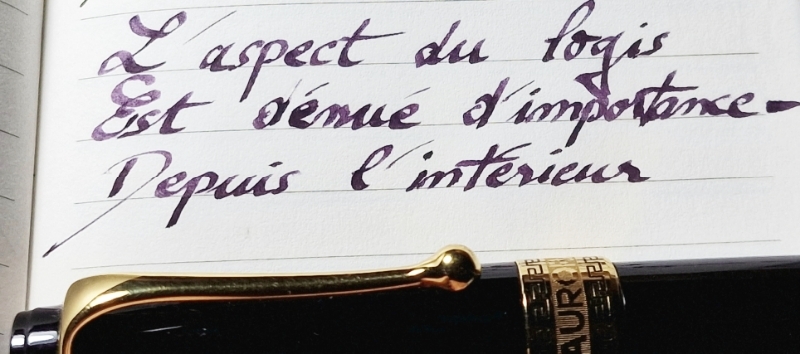 L'aspect du logis
Est dénué d'importance -
Depuis l'intérieur
AURO